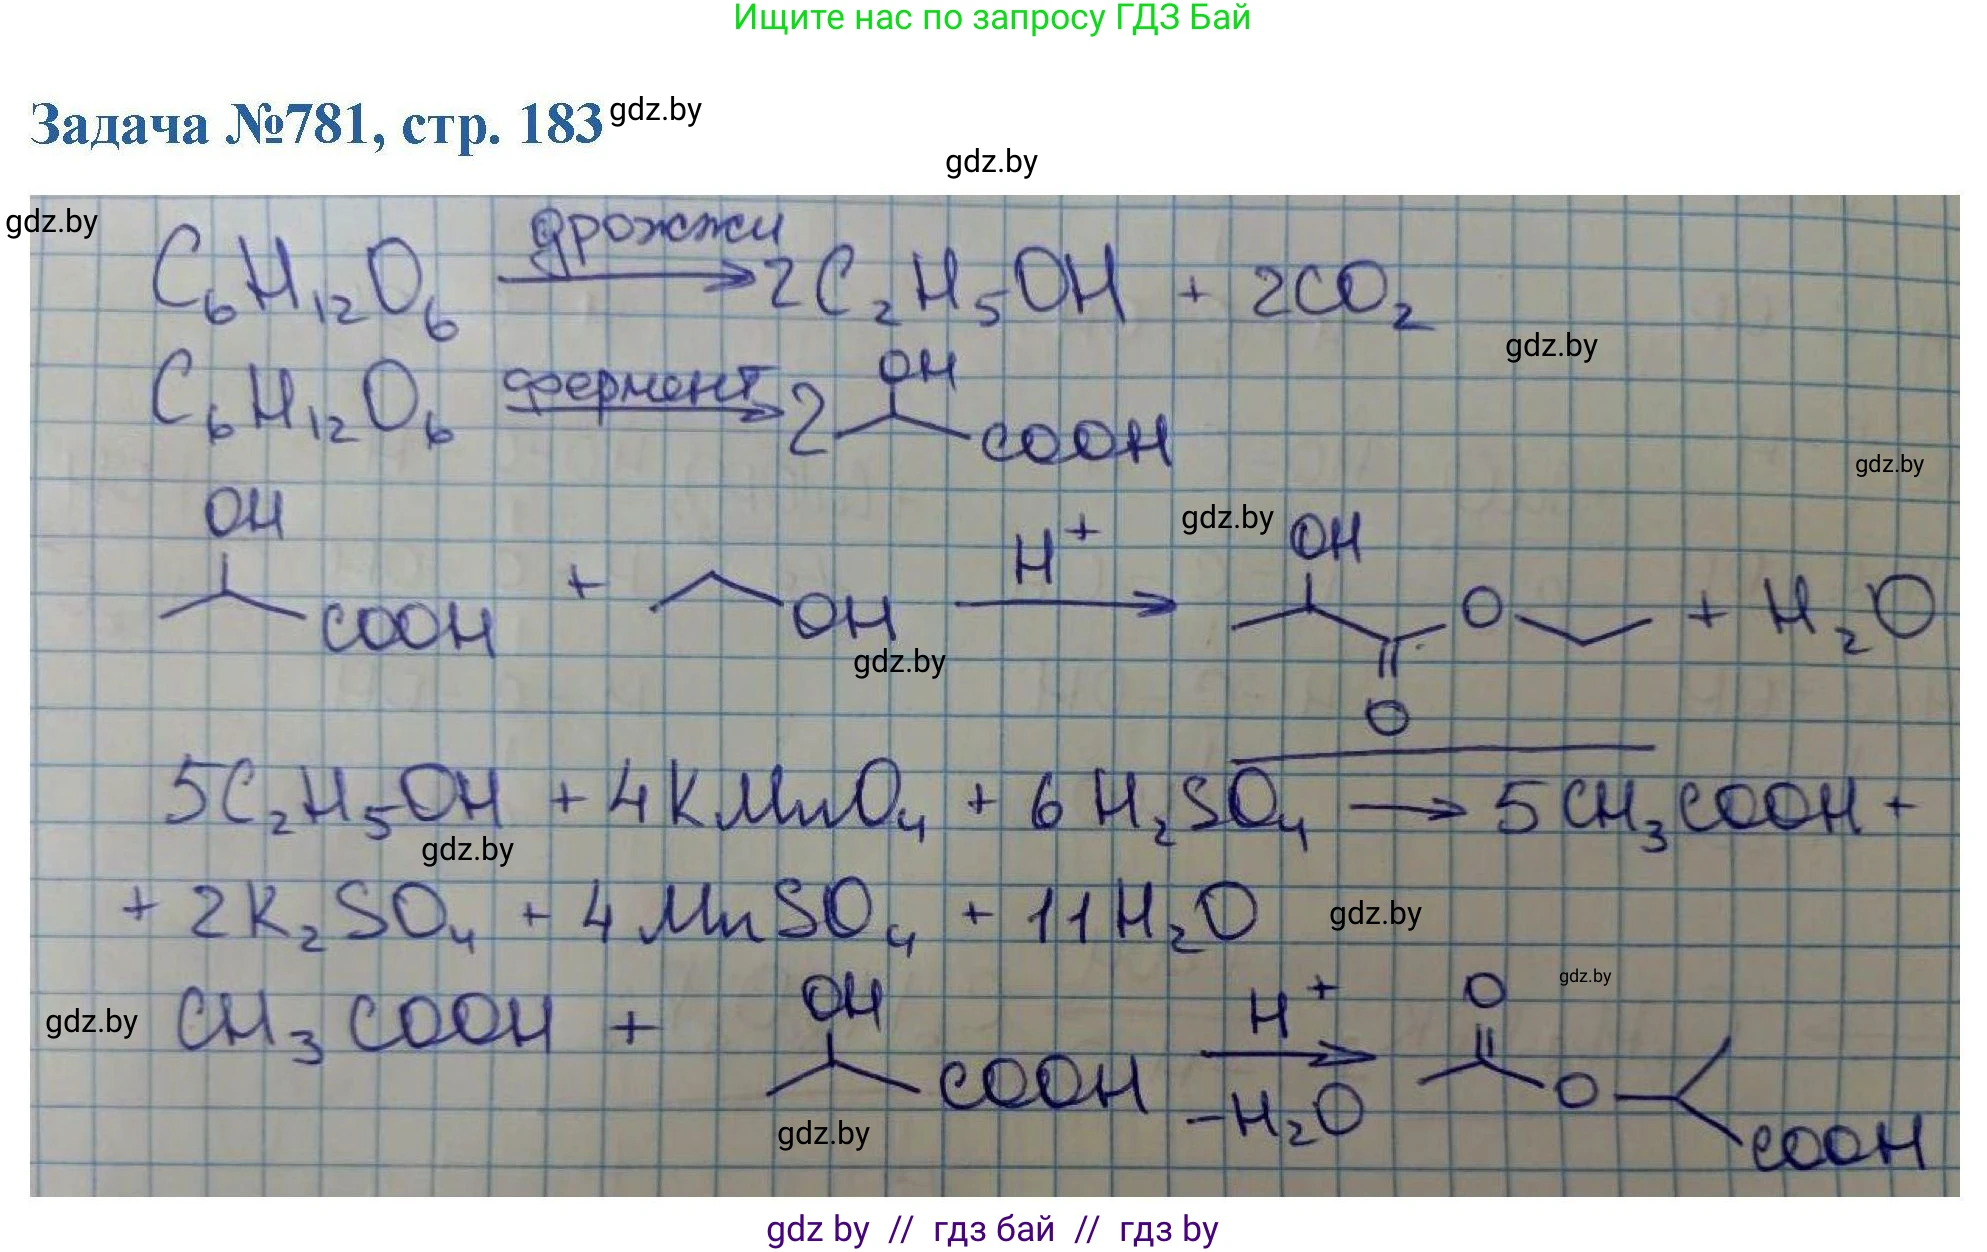 Ищите нас по запросу ГДЗ Бай
Задача №781, стр. 183 gdz.by
gdz.by
gdz.by
C₆H₁₂O₆ дрожжи → 2C₂H₅OH + 2CO₂
gdz.by
C₆H₁₂O₆ фермент → 2 OH COOH
gdz.by
gdz.by
OH COOH + OH H⁺ → OH O O + H₂O
gdz.by
5C₂H₅OH + 4KMnO₄ + 6H₂SO₄ → 5CH₃COOH +
gdz.by
+ 2K₂SO₄ + 4MnSO₄ + 11H₂O
gdz.by
gdz.by
gdz.by
CH₃COOH + OH COOH H⁺ → −H₂O O O COOH
gdz.by
gdz by // гдз бай // гдз by